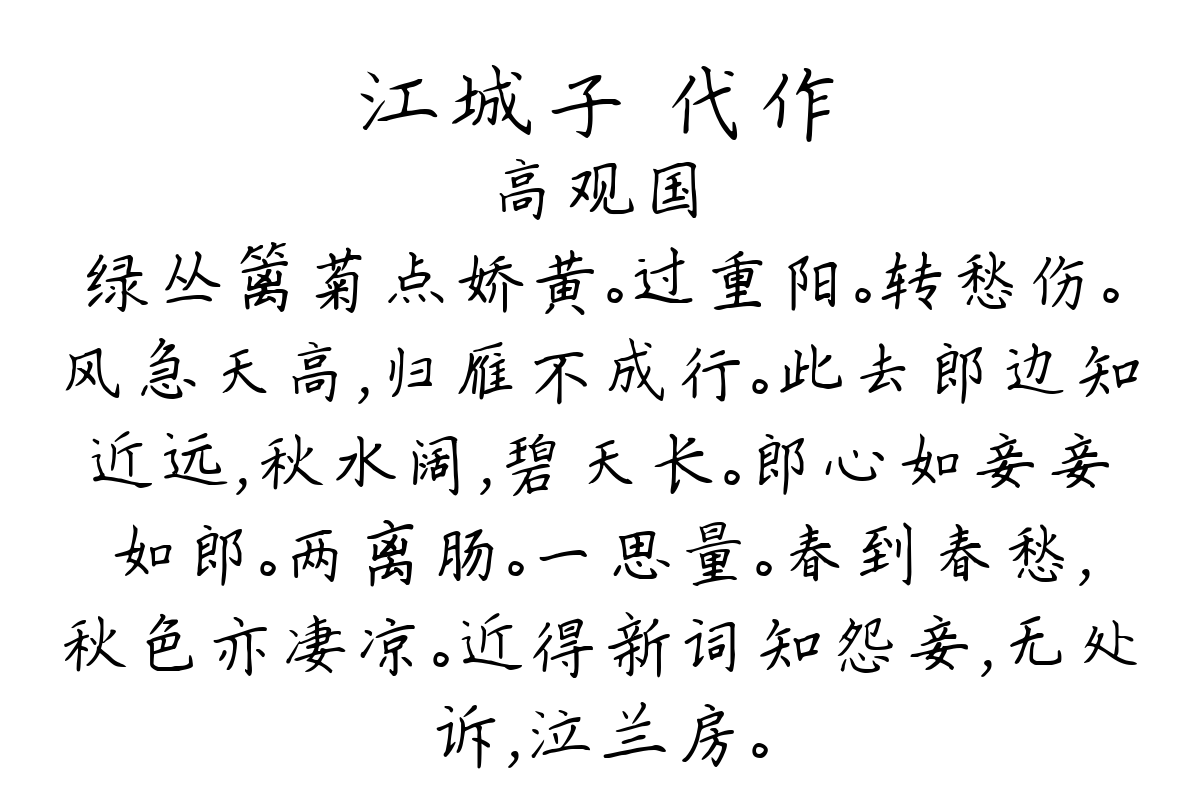 江城子 代作
高观国
绿丛篱菊点娇黄。过重阳。转愁伤。
风急天高,归雁不成行。此去郎边知
近远,秋水阔,碧天长。郎心如妾妾
如郎。两离肠。一思量。春到春愁,
秋色亦凄凉。近得新词知怨妾,无处
诉,泣兰房。